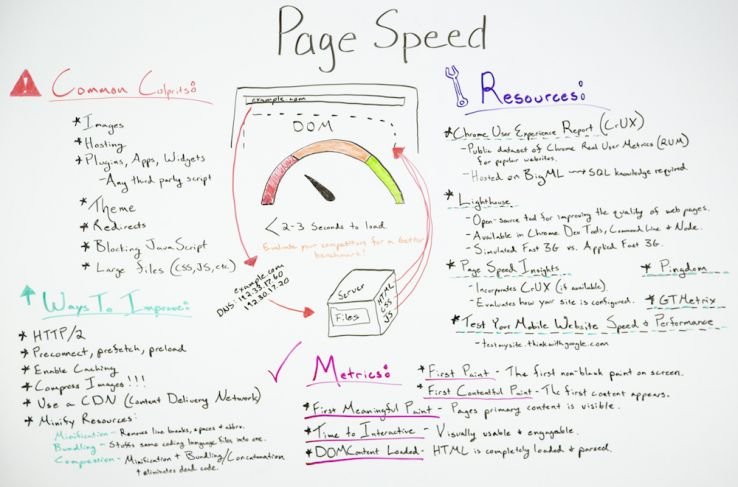 Page Speed
Common Culprits:
* Images
* Hosting
* Plugins, Apps, Widgets
- Any third party script
* Theme
* Redirects
* Blocking JavaScript
* Large files (CSS, JS, etc.)
Ways To Improve:
* HTTP/2
* Preconnect, prefetch, preload
* Enable Caching
* Compress Images!!!
* Use a CDN (Content Delivery Network)
* Minify Resources:
Minification - Removes line breaks, spaces & abbrv.
Bundling - Stuffs same coding language files into one.
Compression - Minification + Bundling/Concatenation
+ eliminates dead code.
example.com
DOM
< 2-3 Seconds to load.
Evaluate your competitors for a better
benchmark!
example.com
DNS: 192.38.17.60
192.30.17.20
Server
Files
HTML
CSS
JS
Resources:
* Chrome User Experience Report (CrUX)
- Public dataset of Chrome Real User Metrics (RUM)
for popular websites.
- Hosted on BigML → SQL knowledge required
* Lighthouse
- Open-source tool for improving the quality of web pages.
- Available in Chrome Dev Tools, Command Line & Node.
- Simulated Fast 3G vs. Applied Fast 3G.
* Page Speed Insights
- Incorporates CrUX (if available)
- Evaluates how your site is configured.
* Pingdom
* GTMetrix
* Test Your Mobile Website Speed & Performance
- testmysite.thinkwithgoogle.com
Metrics:
* First Paint - The first non-blank paint on screen.
* First Contentful Paint - The first content appears.
* First Meaningful Paint - Pages primary content is visible.
* Time to Interactive - Visually usable & engagable.
* DOMContent Loaded - HTML is completely loaded & parsed.